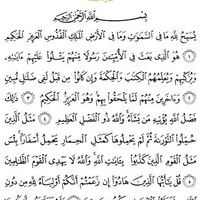 بِسْمِ اللَّهِ الرَّحْمَٰنِ الرَّحِيمِ
يُسَبِّحُ لِلَّهِ مَا فِي السَّمَٰوَٰتِ وَمَا فِي الْأَرْضِ الْمَلِكِ الْقُدُّوسِ الْعَزِيزِ الْحَكِيمِ
١ هُوَ الَّذِي بَعَثَ فِي الْأُمِّيِّينَ رَسُولًا مِنْهُمْ يَتْلُوا عَلَيْهِمْ ءَايَٰتِهِ
وَيُزَكِّيهِمْ وَيُعَلِّمُهُمُ الْكِتَٰبَ وَالْحِكْمَةَ وَإِن كَانُوا مِن قَبْلُ لَفِي ضَلَٰلٍ مُّبِينٍ
٢ وَءَاخَرِينَ مِنْهُمْ لَمَّا يَلْحَقُوا بِهِمْ وَهُوَ الْعَزِيزُ الْحَكِيمُ ٣ ذَٰلِكَ
فَضْلُ اللَّهِ يُؤْتِيهِ مَن يَشَاءُ وَاللَّهُ ذُو الْفَضْلِ الْعَظِيمِ ٤ مَثَلُ الَّذِينَ
حُمِّلُوا التَّوْرَىٰةَ ثُمَّ لَمْ يَحْمِلُوهَا كَمَثَلِ الْحِمَارِ يَحْمِلُ أَسْفَارًا بِئْسَ
مَثَلُ الْقَوْمِ الَّذِينَ كَذَّبُوا بِـَٔايَٰتِ اللَّهِ وَاللَّهُ لَا يَهْدِي الْقَوْمَ الظَّٰلِمِينَ
٥ قُلْ يَٰأَيُّهَا الَّذِينَ هَادُوا إِن زَعَمْتُمْ أَنَّكُمْ أَوْلِيَاءُ لِلَّهِ مِن دُونِ